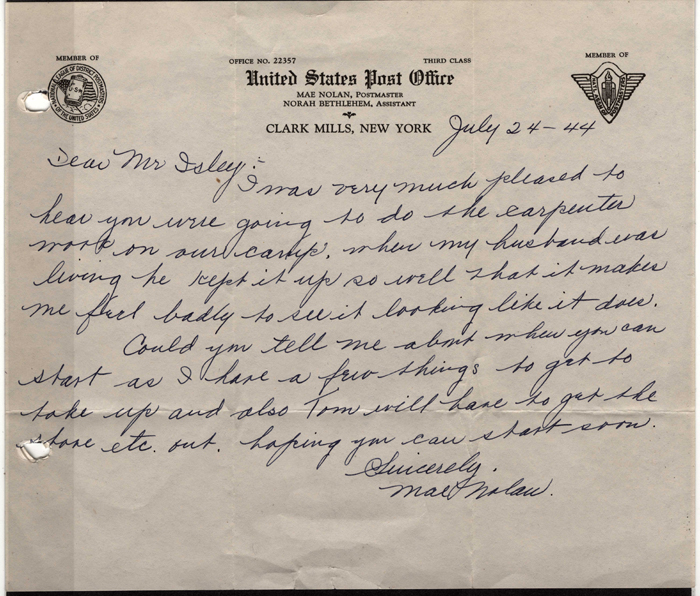 MEMBER OF
OFFICE NO. 22357
THIRD CLASS
MEMBER OF
United States Post Office
MAE NOLAN, POSTMASTER
NORAH BETHLEHEM, ASSISTANT
CLARK MILLS, NEW YORK
July 24-44
Dear Mr Isley:-
I was very much pleased to
hear you were going to do the carpenter
work on our camp. when my husband was
living he kept it up so well that it makes
me feel badly to see it looking like it does.
Could you tell me about when you can
start as I have a few things to get to
take up and also Tom will have to get the
out. hoping you can start soon.
Sincerely.
Mae Nolan.